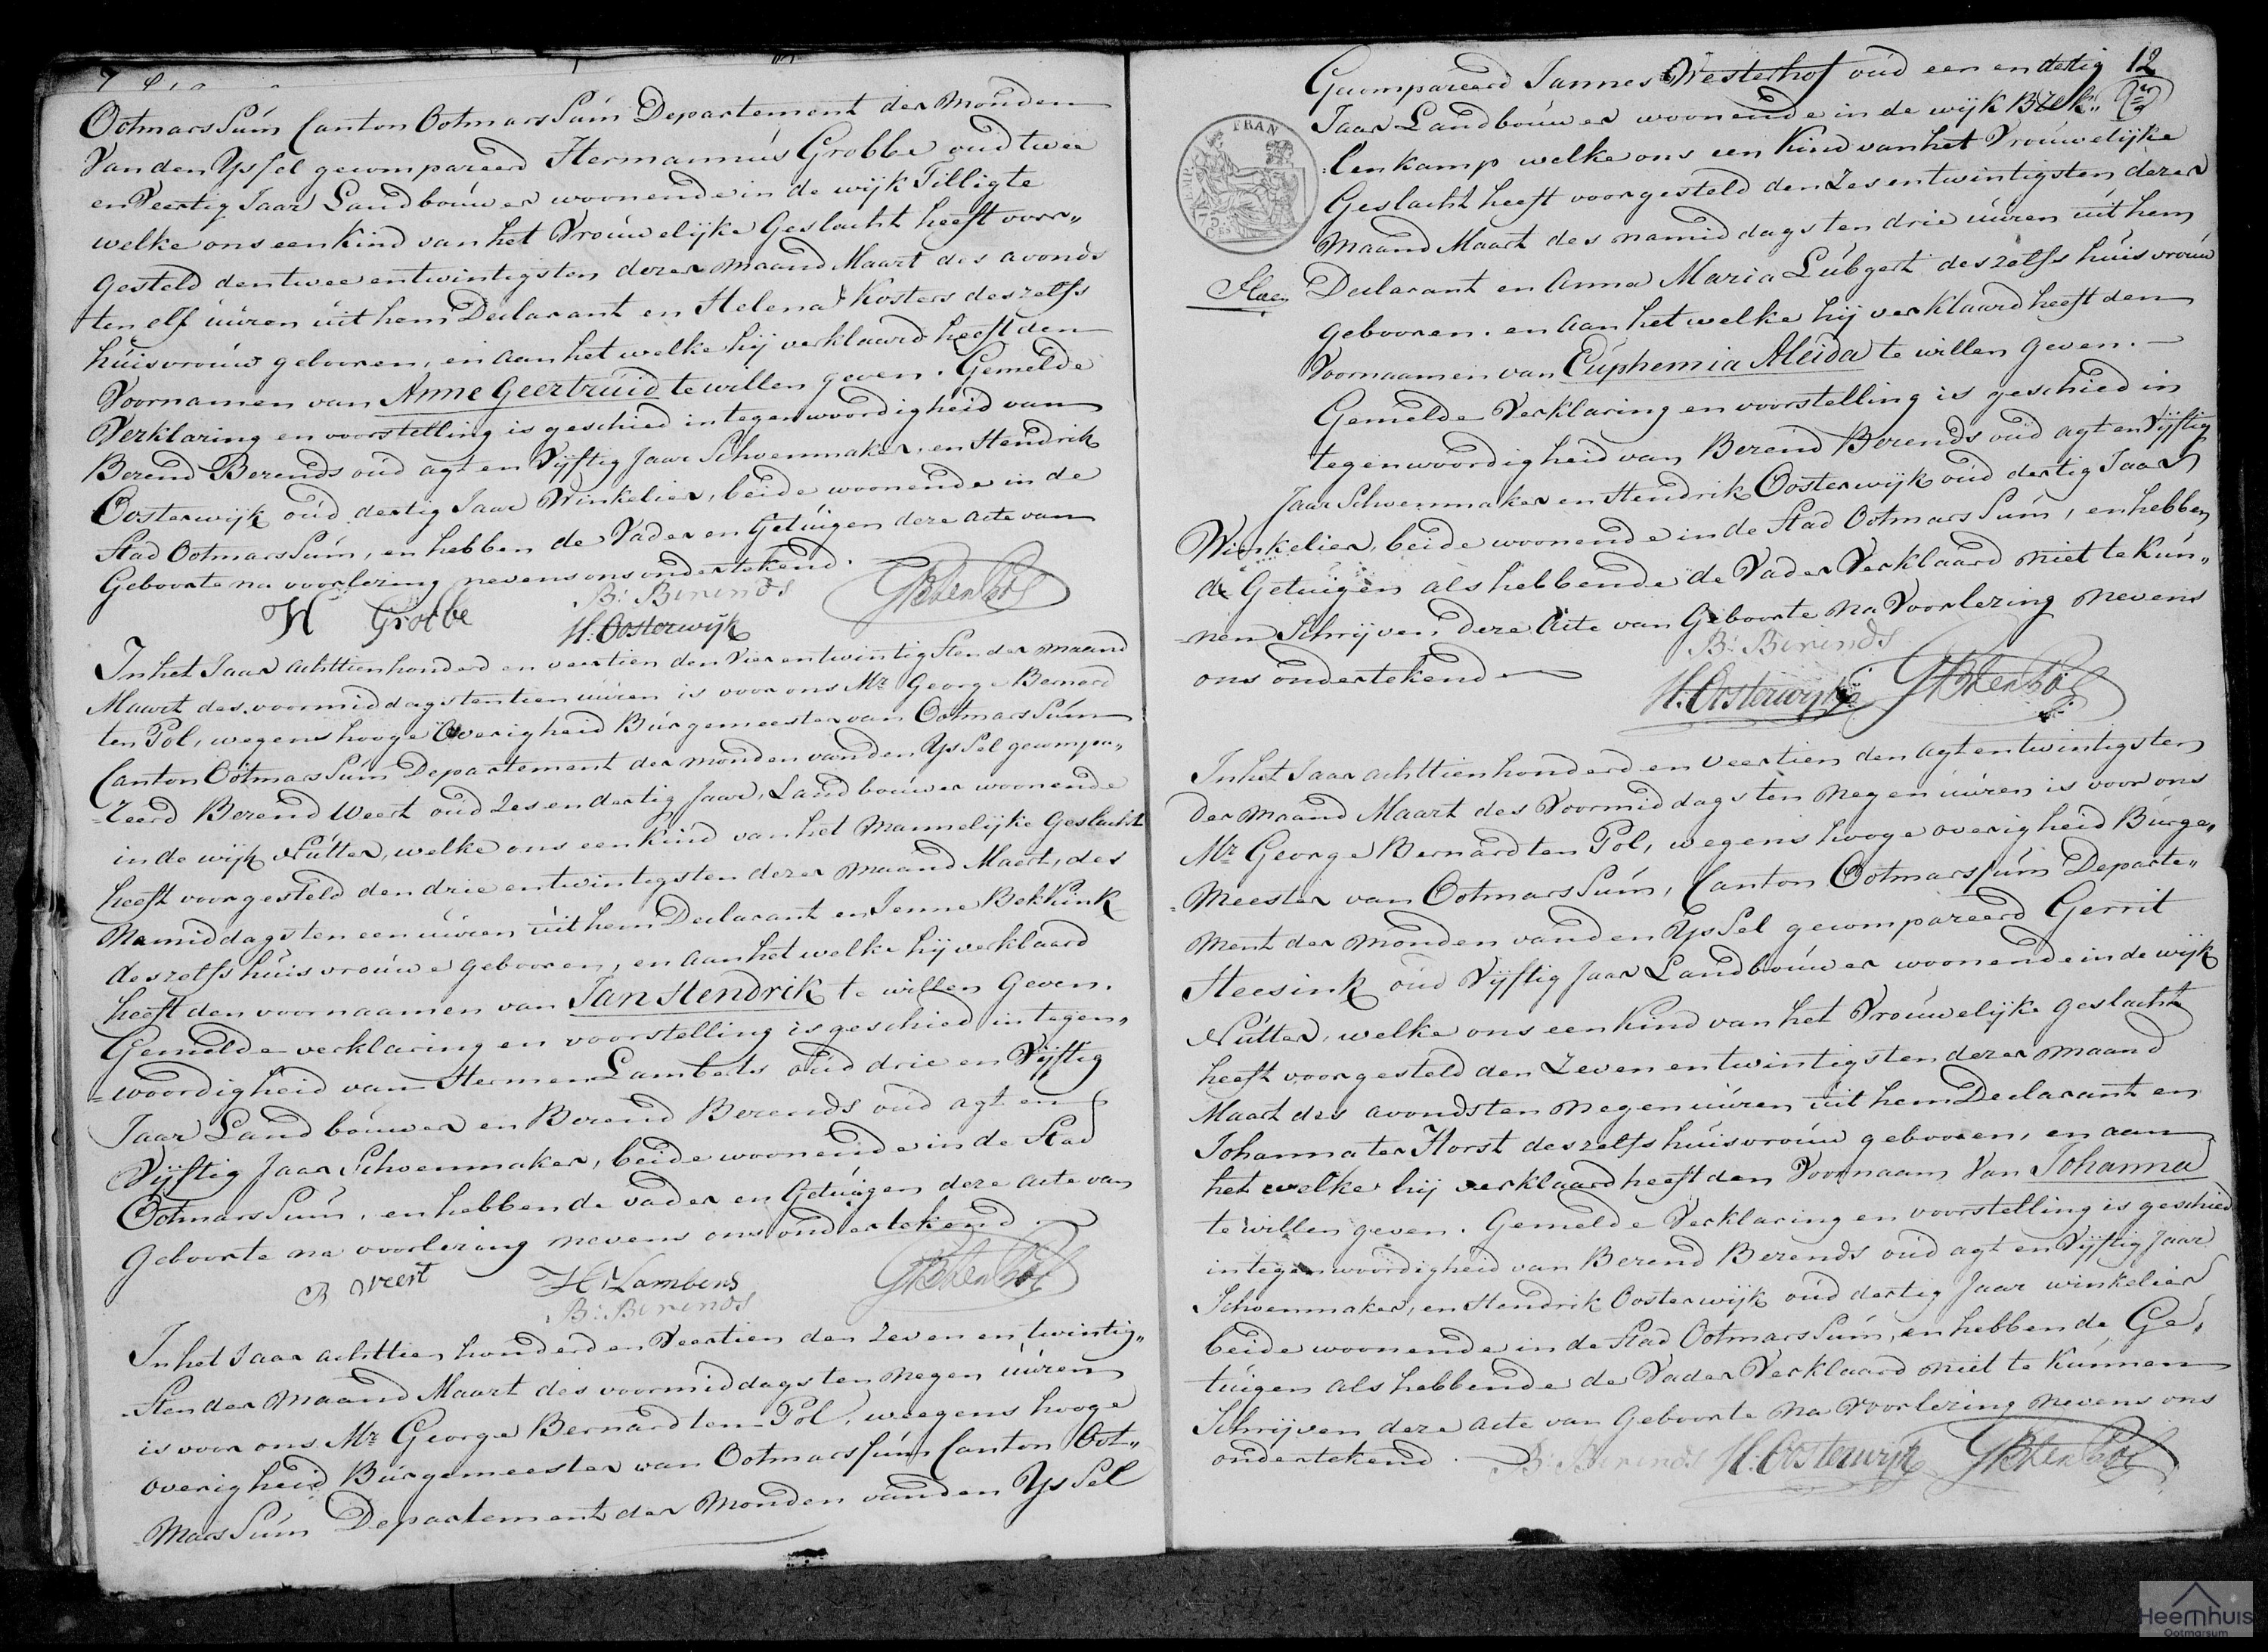 Ootmarssúm Canton Ootmarssúm Departement der Monden
Van den Yssel gecompareerd Hermannús Grobbe oúd twee
en Veertig Jaar Landboúwer woonende in de wijk Tilligte
welke ons een Kind van het Vroúwelijke Geslacht heeft voor„
gesteld den twee entwintigsten dezer maand Maart des avonds
ten elf úúren úit hem Declarant en Helena Kosters deszelfs
húisvroúw gebooren, en aan het welke hij verklaard heeft den
Voornamen van Anne Geertrúid te willen geven. Gemelde
Verklaring en voorstelling is geschied in tegenwoordigheid van
Berend Berends oúd agt en Vijftig Jaar Schoenmaker, en Hendrik
Oosterwijk oúd dertig Jaar Winkelier, beide woonende in de
Stad Ootmarssúm, en hebben de Vader en Getúigen deze acte van
Geboorte na voorlezing nevens ons ondertekend.
H Grobbe B: Berends GBtenPol
H: Oosterwijk
In het Jaar achttienhonderd en veertien den Vierentwintigsten der maand
Maart des voormiddags ten tien úúren is voor ons Mr George Bernard
ten Pol, wegens hooge Overigheid Búrgemeester van Ootmarssúm
Canton Ootmarssúm Departement der monden van den Yssel gecompa„
-reerd Berend Weert oúd Zes en dertig Jaar, Landboúwer woonende
in de wijk Nútter, welke ons een kind van het Mannelijke Geslacht
heeft voorgesteld den drie entwintigsten dezer maand Maart, des
Namiddags ten een úúren úit hem Declarant en Jenne Bekkink
deszelfs húisvroúwe gebooren, en aan het welke hij verklaard
heeft den voornaamen van Jan Hendrik te willen Geven.
Gemelde verklaring en voorstelling is geschied in tegen„
=woordigheid van Hermen Lamberts oúd drie en Vijftig
Jaar Landboúwer en Berend Berends oúd agt en
Vijftig Jaar Schoenmaker, beide woonende in de Stad
Ootmarssúm, en hebben de vader en Getúigen deze acte van
Geboorte na voorlezing nevens ons ondertekend.
B Weert H: Lambers GBtenPol
B: Berends
In het Jaar achttien honderd en Veertien den zeven en twintig„
-sten der maand Maart des voormiddags ten negen úúren
is voor ons Mr George Bernard ten Pol, weegens hooge
overigheid Búrgemeester van Ootmarssúm Canton Oot„
-marssúm Departement der Monden van den Yssel
12
Gecompareerd Jannes Westerhof oúd een en dertig
Jaar Landboúwer woonende in de wijk Brek„
:lenkamp welke ons een Kind van het Vroúwelijke
Geslacht heeft voorgesteld den Zes entwintigsten dezer
maand Maart des namiddags ten drie úúren úit hem
Declarant en Anna Maria Lúbgert deszelfs húisvroúw
gebooren. en aan het welke hij verklaard heeft den
Voornaamen van Eúphemia Aleida te willen geven.
Gemelde Verklaring en voorstelling is geschied in
tegenwoordigheid van Berend Berends oúd agt en Vijftig
Jaar Schoenmaker en Hendrik Oosterwijk oúd dertig Jaar
Winkelier, beide woonende in de Stad Ootmarssúm, en hebben
de Getuigen als hebbende de Vader Verklaard niet te kún„
-nen Schrijven deze Acte van Geboorte na Voorlezing nevens
ons ondertekend
B: Berends
H: Oosterwijk GBtenPol
In het Jaar achttienhonderd en veertien den agtentwintigsten
der maand Maart des Voormiddags ten Negen úúren is voor ons
Mr George Bernard ten Pol, wegens hooge overigheid Búrge„
=meester van Ootmarssúm, Canton Ootmarssúm Departe„
ment der Monden van den Yssel gecompareerd Gerrit
Heesink oúd Vijftig Jaar Landboúwer woonende in de wijk
Nútter, welke ons een kind van het Vroúwelijke geslacht
heeft voorgesteld den zeven entwintigsten dezer maand
Maart des avonds ten negen úúren úit hem Declarant en
Johanna ter Horst deszelfs húisvroúw gebooren, en aan
het welke hij verklaard heeft den Voornaam Van Johanna
te willen geven. Gemelde Verklaring en voorstelling is geschied
in tegenwoordigheid van Berend Berends oúd agt en Vijftig Jaar
Schoenmaker, en Hendrik Oosterwijk oúd dertig Jaar winkelier
beide woonende in de Stad Ootmarssúm, en hebben de Ge„
túigen als hebbende de Vader Verklaard niet te kúnnen
Schrijven deze acte van Geboorte na voorlezing nevens ons
ondertekend. B: Berends H: Oosterwijk GBtenPol
FRAN
75
Heemhuis
Ootmarsum